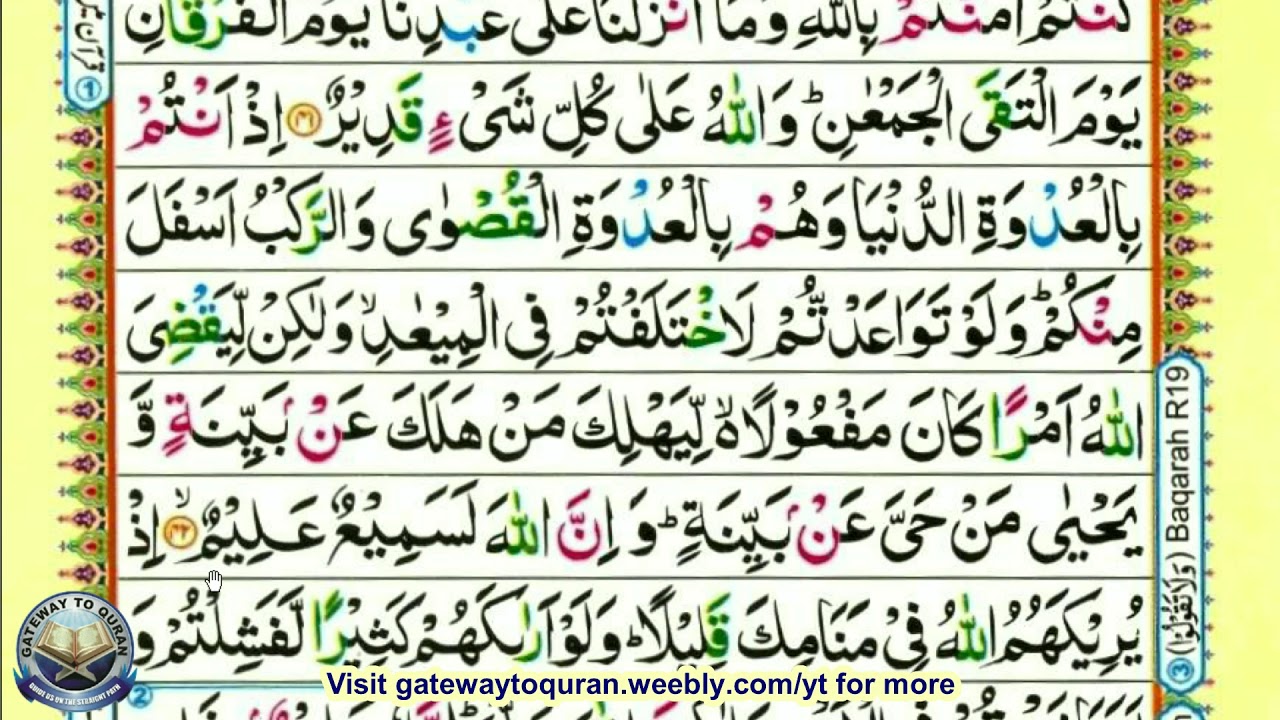 كُنْتُمْ اٰمَنْتُمْ بِاللّٰهِ وَمَاۤ اَنْزَلْنَا عَلٰى عَبْدِنَا يَوْمَ الْفُرْقَانِ
يَوْمَ الْتَقَى الْجَمْعٰنِ ؕ وَاللّٰهُ عَلٰى كُلِّ شَىْءٍ قَدِيْرٌ ﴿۴۱﴾ اِذْ اَنْتُمْ
بِالْعُدْوَةِ الدُّنْيَا وَهُمْ بِالْعُدْوَةِ الْقُصْوٰى وَالرَّكْبُ اَسْفَلَ
مِنْكُمْ ؕ وَلَوْ تَوَاعَدْتُّمْ لَاخْتَلَفْتُمْ فِى الْمِيْعٰدِ ۙ وَلٰكِنْ لِّيَقْضِىَ
اللّٰهُ اَمْرًا كَانَ مَفْعُوْلًا ۙ۬ لِّيَهْلِكَ مَنْ هَلَكَ عَنْۢ بَيِّنَةٍ وَّ
يَحْيٰى مَنْ حَىَّ عَنْۢ بَيِّنَةٍ ؕ وَ اِنَّ اللّٰهَ لَسَمِيْعٌ عَلِيْمٌ ۙ﴿۴۲﴾ اِذْ
يُرِيْكَهُمُ اللّٰهُ فِىْ مَنَامِكَ قَلِيْلًا ؕ وَلَوْ اَرٰىكَهُمْ كَثِيْرًا لَّفَشِلْتُمْ وَ
قرآن
1
Baqarah R19 (وَلَا تَقُوْلُوْا)
3
2
GATEWAY TO QURAN
GUIDE US ON THE STRAIGHT PATH
Visit gatewaytoquran.weebly.com/yt for more